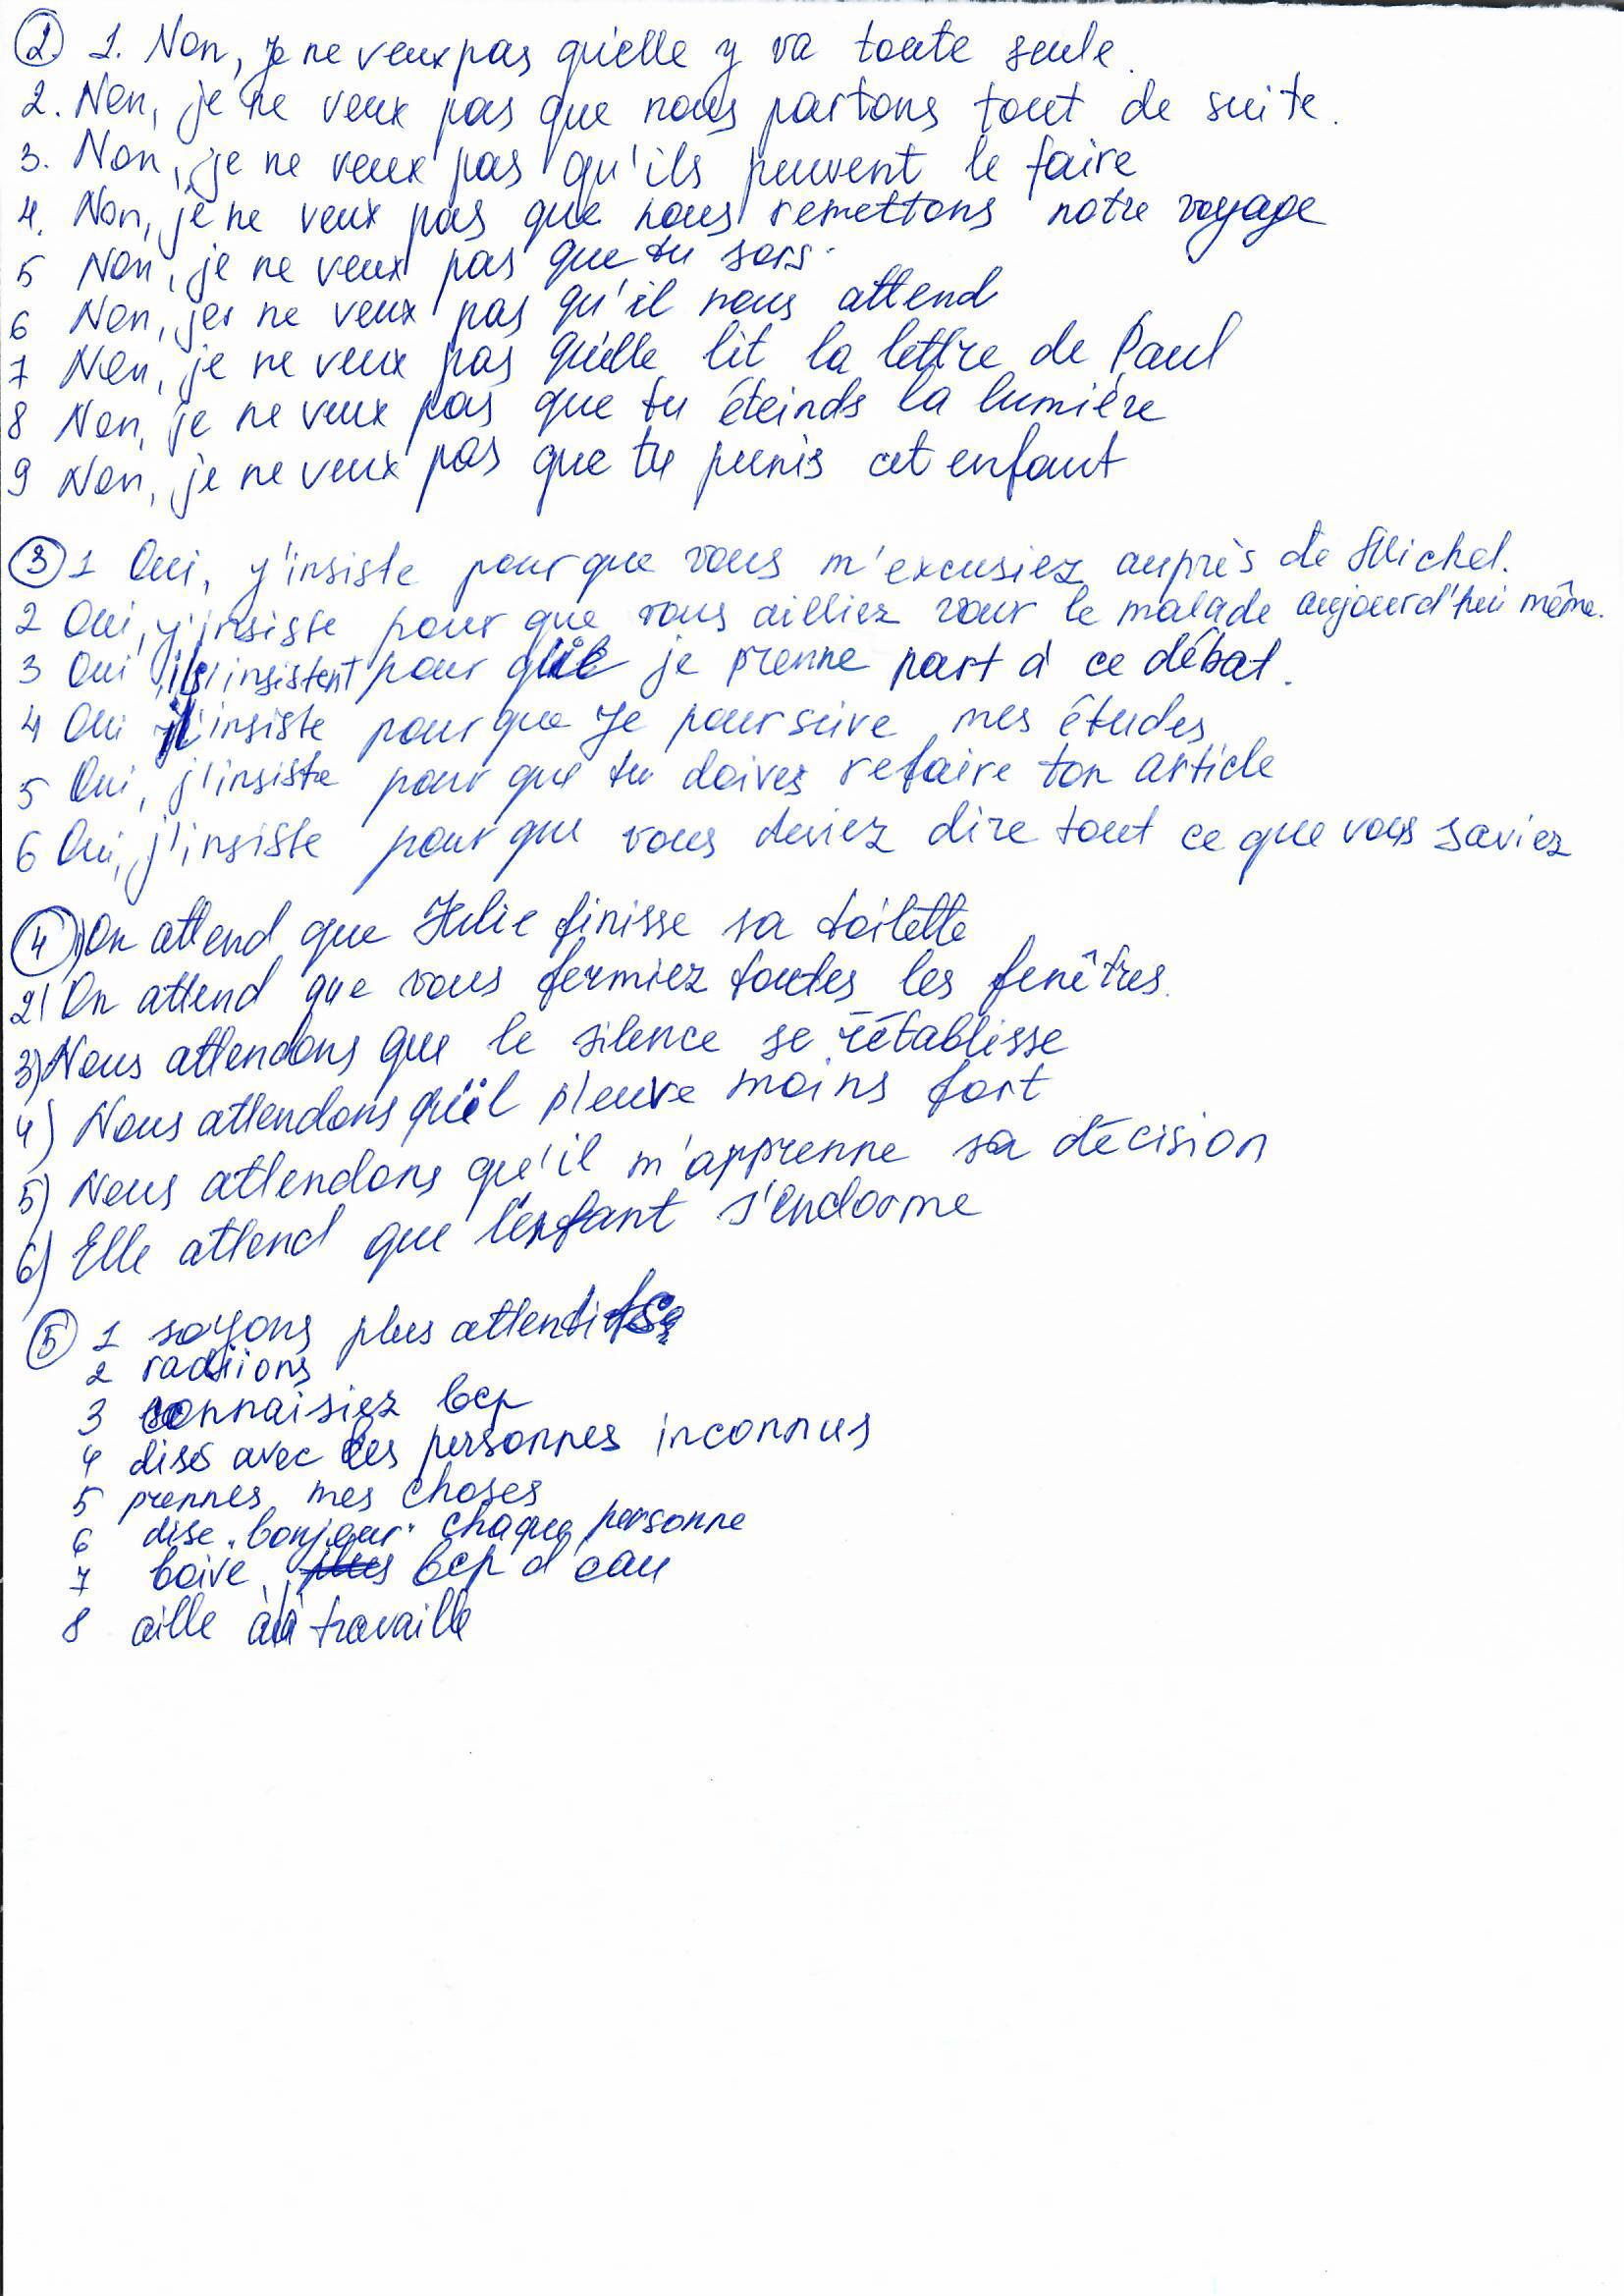 ② 1. Non, je ne veux pas qu'elle y va toute seule.
2. Non, je ne veux pas que nous partons tout de suite.
3. Non, je ne veux pas qu'ils peuvent le faire
4. Non, je ne veux pas que nous remettons notre voyage
5 Non, je ne veux pas que tu sors.
6 Non, je ne veux pas qu'il nous attend
7 Non, je ne veux pas qu'elle lit la lettre de Paul
8 Non, je ne veux pas que tu éteinds la lumière
9 Non, je ne veux pas que tu punis cet enfant
③ 1 Oui, y'insiste pour que vous m'excusiez auprès de Michel.
2 Oui, y'insiste pour que vous ailliez le malade aujourd'hui même.
3 Oui ils insistent pour que je prenne part à ce débat.
4 Oui il insiste pour que je poursuive mes études
5 Oui, j'insiste pour que tu doives refaire ton article
6 Oui, j'insiste pour que vous deviez dire tout ce que vous saviez
④ 1) On attend que Julie finisse sa toilette
2) On attend que vous fermiez toutes les fenêtres.
3) Nous attendons que le silence se rétablisse
4) Nous attendons qu'il pleuve moins fort
5) Nous attendons qu'il m'apprenne sa décision
6) Elle attend que l'enfant s'endorme
⑤ 1 soyons plus attentifs
2
3 connaisiez bcp
4 dises avec des personnes inconnus
5 prennes mes choses
6 dise "bonjour" chaque personne
7 boive bcp d'eau
8 aille à travaille